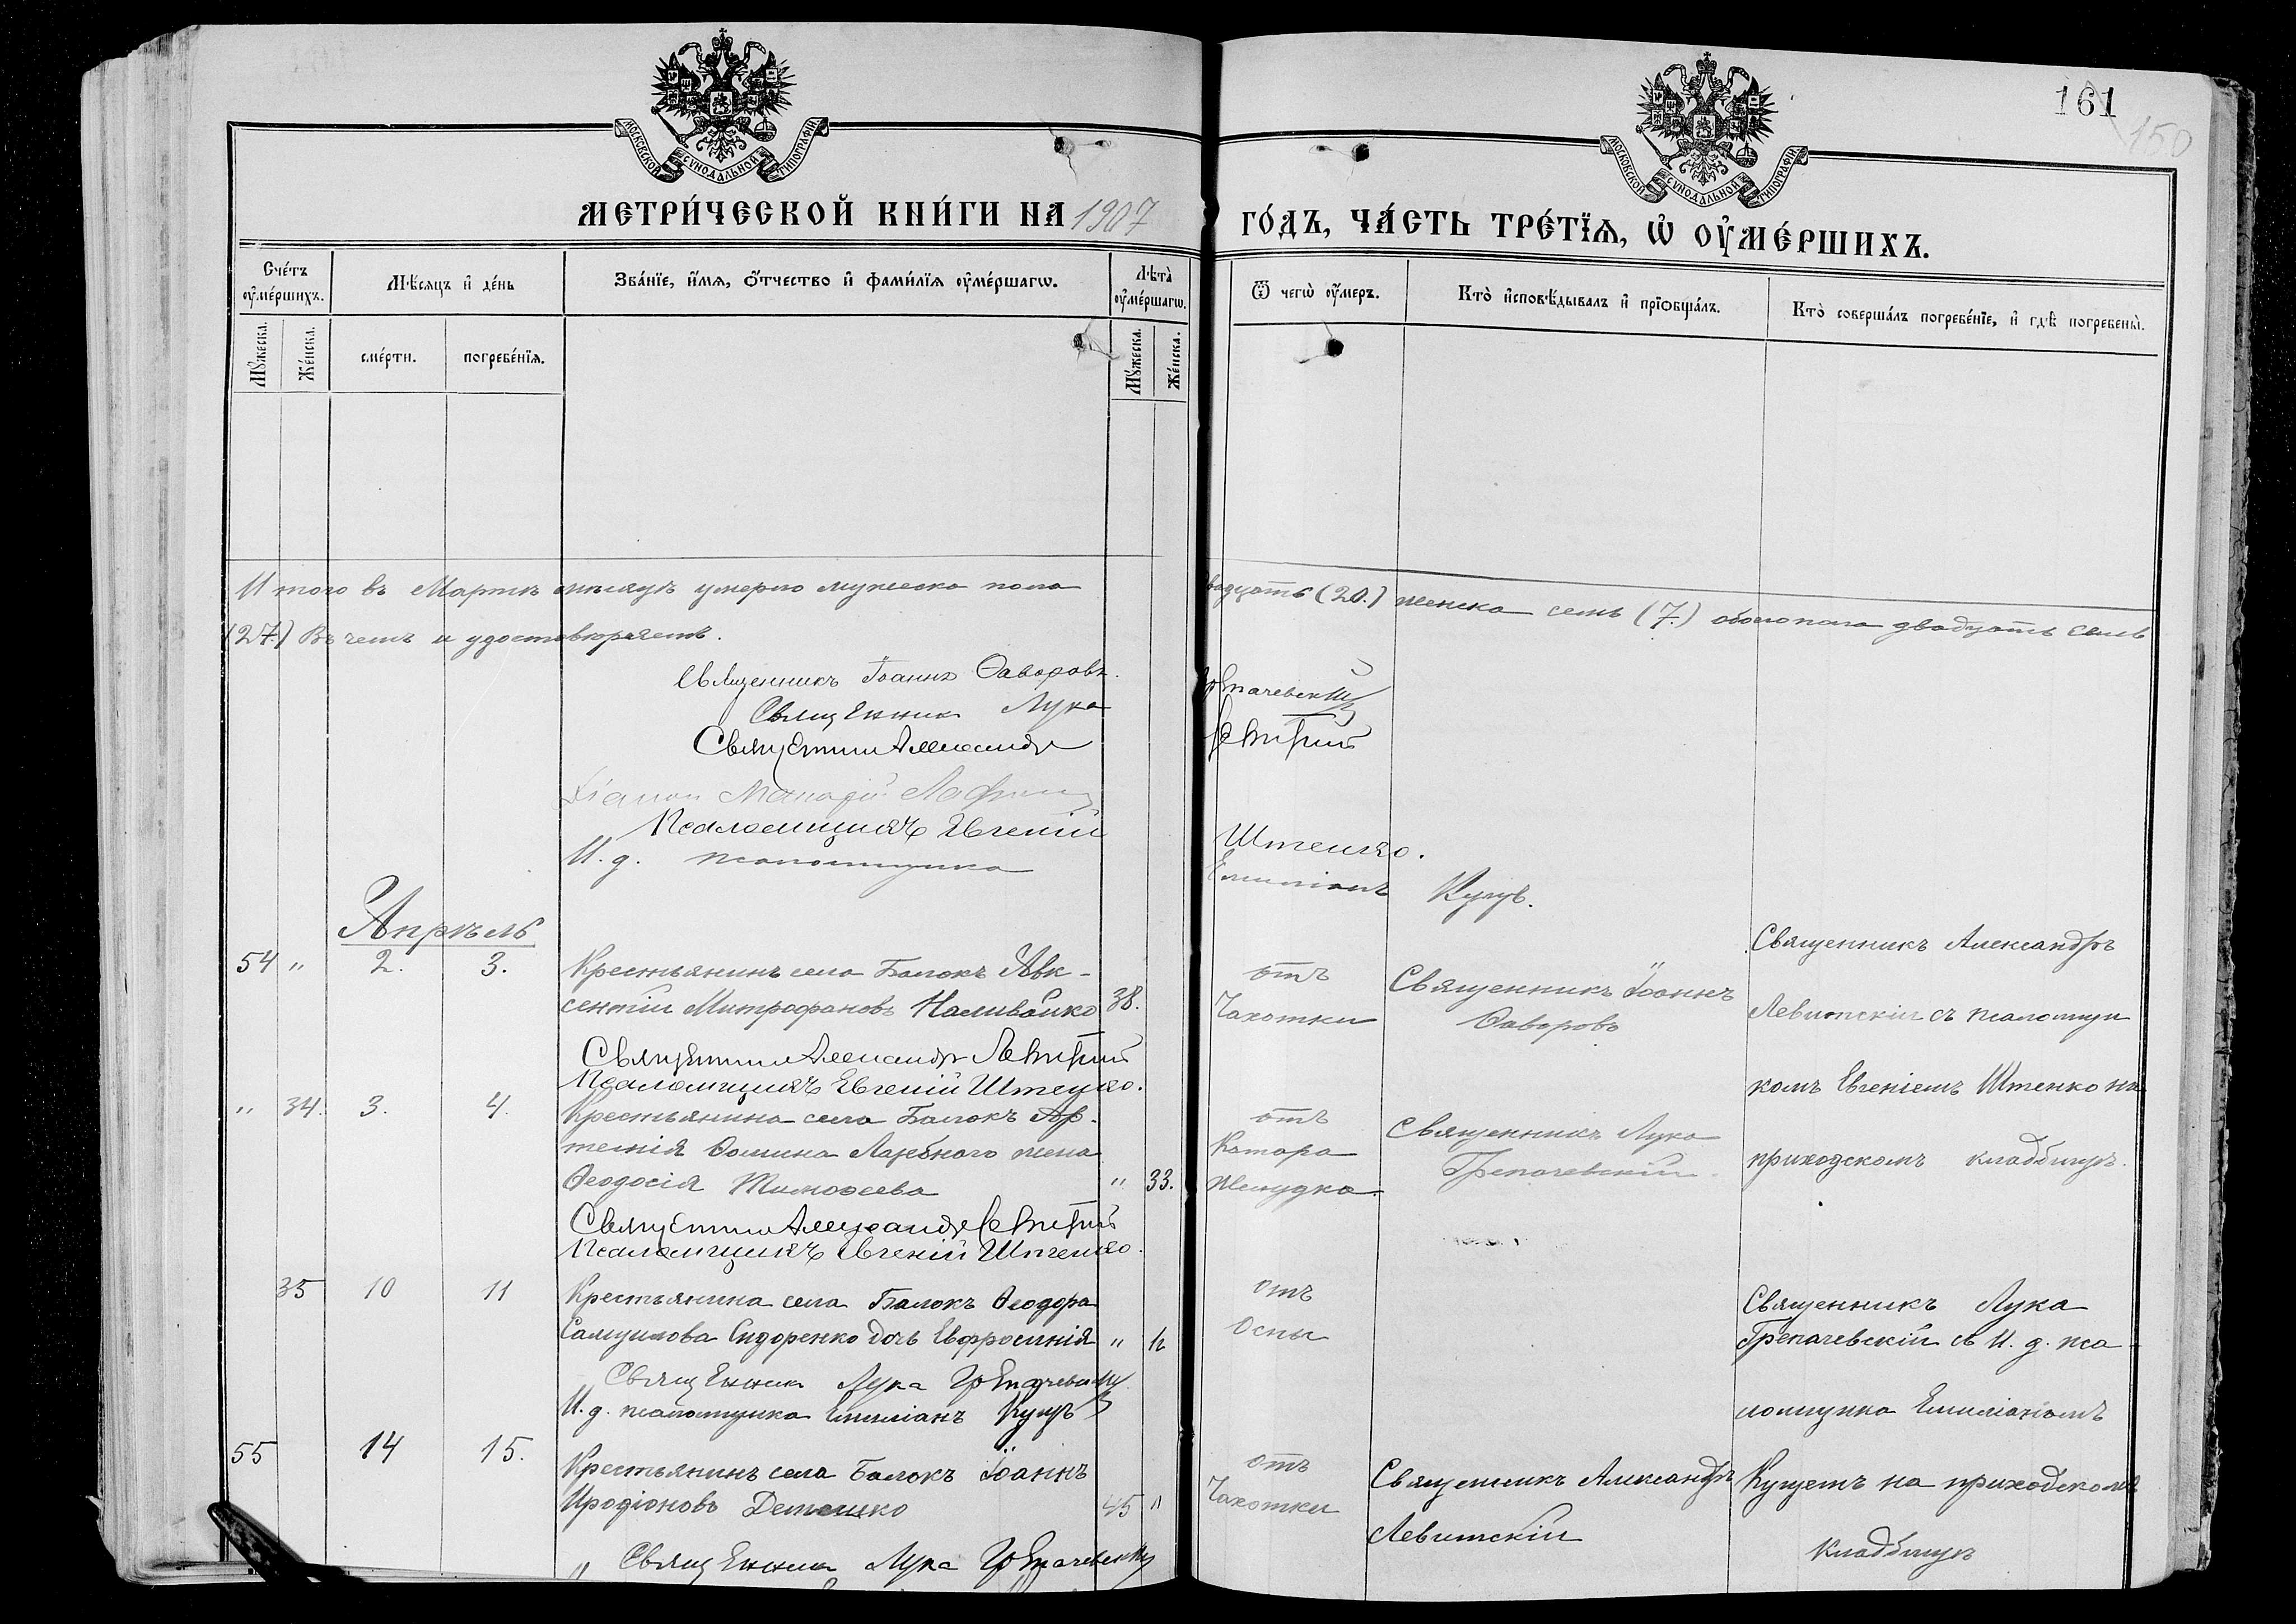 МОСКОВСКОЙ СѴНОДАЛЬНОЙ ТИПОГРАФІИ
МОСКОВСКОЙ СѴНОДАЛЬНОЙ ТИПОГРАФІИ
161
150
МЕТРИ́ЧЕСКОЙ КНИ́ГИ НА 1907
ГО́ДЪ, ЧА́СТЬ ТРЕ́ТЇѦ, Ѡ҆ ОУ҆МЕ́РШИХЪ.
Сче́тъ оу҆ме́ршихъ.
Мꙋ́жеска.
Же́нска.
Мѣ́сяцъ и҆ де́нь
сме́рти.
погребе́нїѧ.
Зва́нїе, и҆́мѧ, ѻ҆́тчество и҆ фами́лїѧ оу҆ме́ршагѡ.
Лѣ̀та оу҆ме́ршагѡ.
Мꙋ́жеска.
Же́нска.
Ѿ чегѡ̀ оу҆́меръ.
Кто̀ и҆сповѣ́дывалъ и҆ прїѻбща́лъ.
Кто̀ соверша́лъ погребе́нїе, и҆ гдѣ̀ погребены̀.
Итого въ Мартѣ мѣсяцѣ умерло мужеска пола
вадцать (20.) женска семь (7.) обоего пола двадцать семь
(27.) Въ чемъ и удостовѣряемъ.
Священникъ Іоаннъ Ѳаворовъ.
Священник Лука
Грепачевскій
Священник Александр
Левитскій
Діакон
Псаломщикъ Евгеній
Штенко.
И. д. псаломщика
Емиліанъ Куцъ.
Апрѣль
54 " 2. 3.
Крестьянинъ села Балокъ Авк-
сентій Митрофановъ Наливайко 38.
отъ
Чахотки
Священникъ Іоаннъ
Ѳаворовъ
Священникъ Александръ
Левитскій съ псаломщи
комъ Евгеніемъ Штенко на
приходскомъ кладбищѣ.
Священник Александр Левитскій
Псаломщикъ Евгеній Штенко.
" 34. 3. 4.
Крестьянина села Балокъ Ар-
темія Ѳомина жена
Ѳеодосія Тимоѳеева " 33.
отъ
Катара
желудка.
Священникъ Лука
Грепачевскій.
Священник Александр Левитскій
Псаломщикъ Евгеній Штенко.
35 10 11
Крестьянина села Балокъ Ѳеодора
Самуилова Сидоренко дочь Евфросинія "
отъ
Оспы
Священникъ Лука
Грепачевскій съ И. д. пса-
ломщика Емиліаномъ
Куцемъ на приходскомъ
кладбищѣ
Священник Лука Грепачевскій
И. д. псаломщика Емиліанъ Куцъ
55 14 15.
Крестьянинъ села Балокъ Іоаннъ
Иродіоновъ 45 "
отъ
Чахотки
Священникъ Александръ
Левитскій
" Священник Лука Грепачевскій